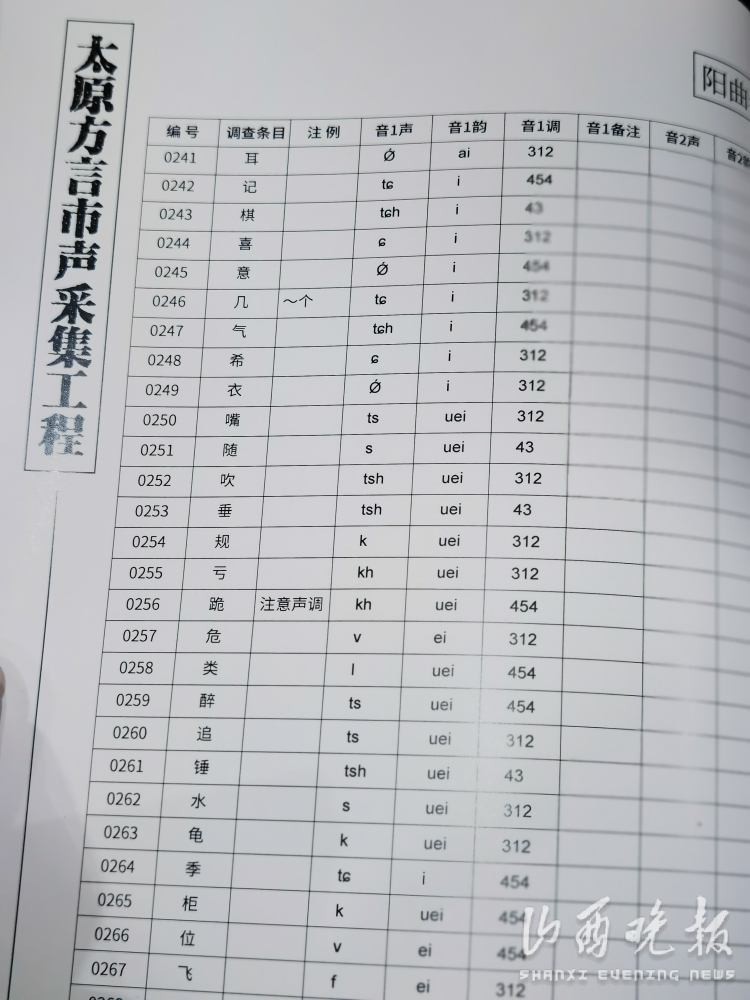 太原方言市声采集工程
阳曲
编号 调查条目 注例 音1声 音1韵 音1调 音1备注 音2声 音2韵
0241 耳 Ǿ ai 312
0242 记 tɕ i 454
0243 棋 tɕh i 43
0244 喜 ɕ i 312
0245 意 Ǿ i 454
0246 几 ～个 tɕ i 312
0247 气 tɕh i 454
0248 希 ɕ i 312
0249 衣 Ǿ i 312
0250 嘴 ts uei 312
0251 随 s uei 43
0252 吹 tsh uei 312
0253 垂 tsh uei 43
0254 规 k uei 312
0255 亏 kh uei 312
0256 跪 注意声调 kh uei 454
0257 危 v ei 312
0258 类 l uei 454
0259 醉 ts uei 454
0260 追 ts uei 312
0261 锤 tsh uei 43
0262 水 s uei 312
0263 龟 k uei 312
0264 季 tɕ i 454
0265 柜 k uei 454
0266 位 v ei 454
0267 飞 f ei 312
山西晚报
SHANXI EVENING NEWS